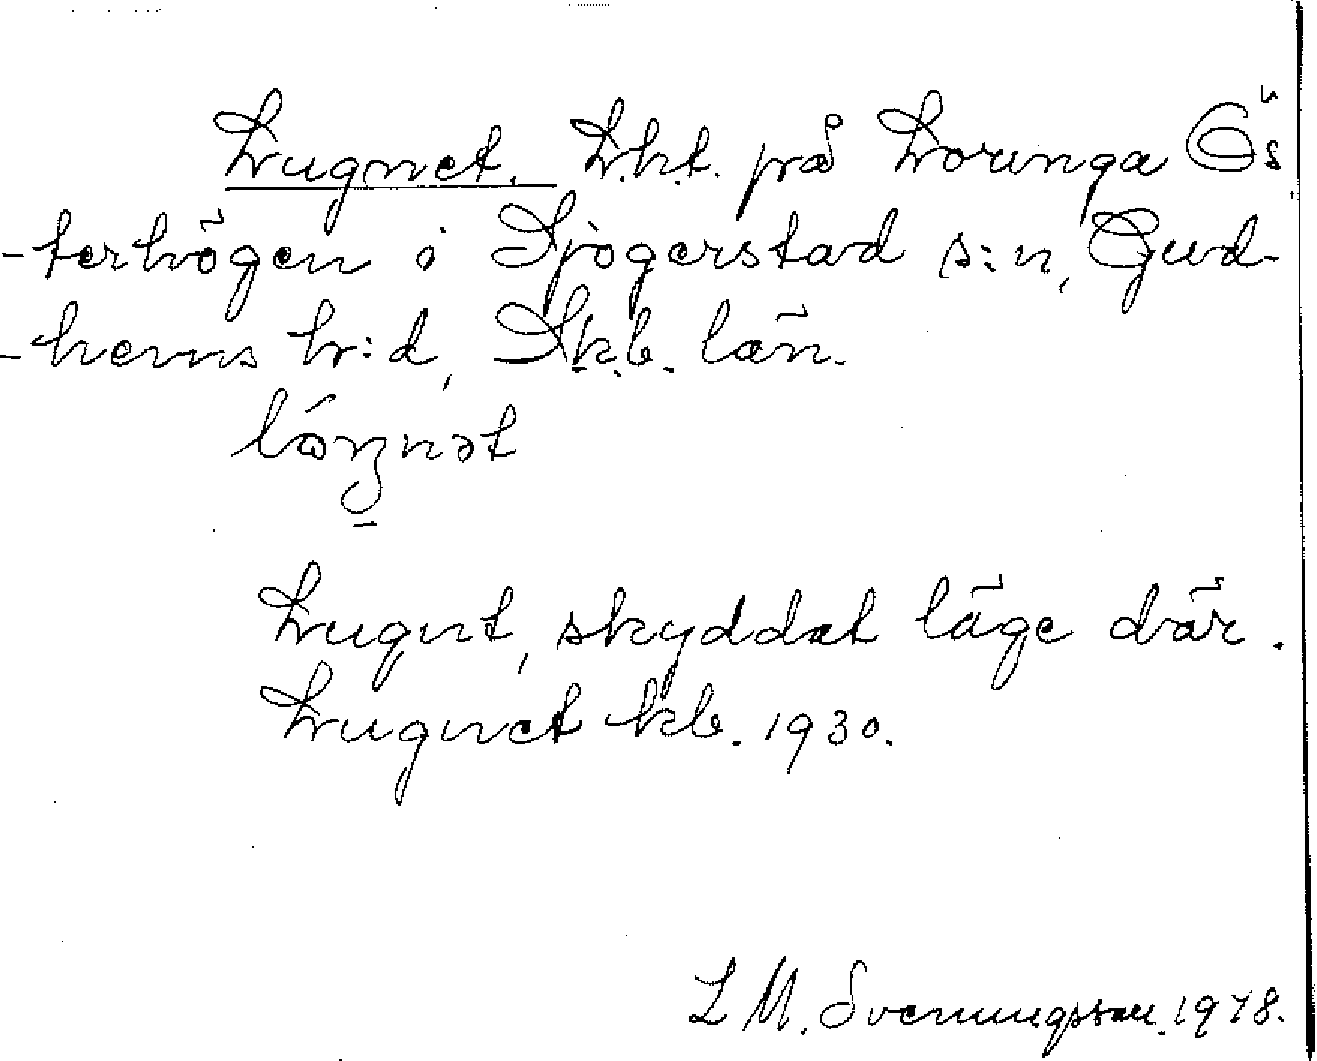 Lugnet. L.h.t. på Lovunga Ös
-terhögen i Sjögerstad s:n, Gud-
-hems h:d, Skb. län.
Lugnt, skyddat läge där.
Lugnet kb. 1930.
L M. Svenungsson. 1978.